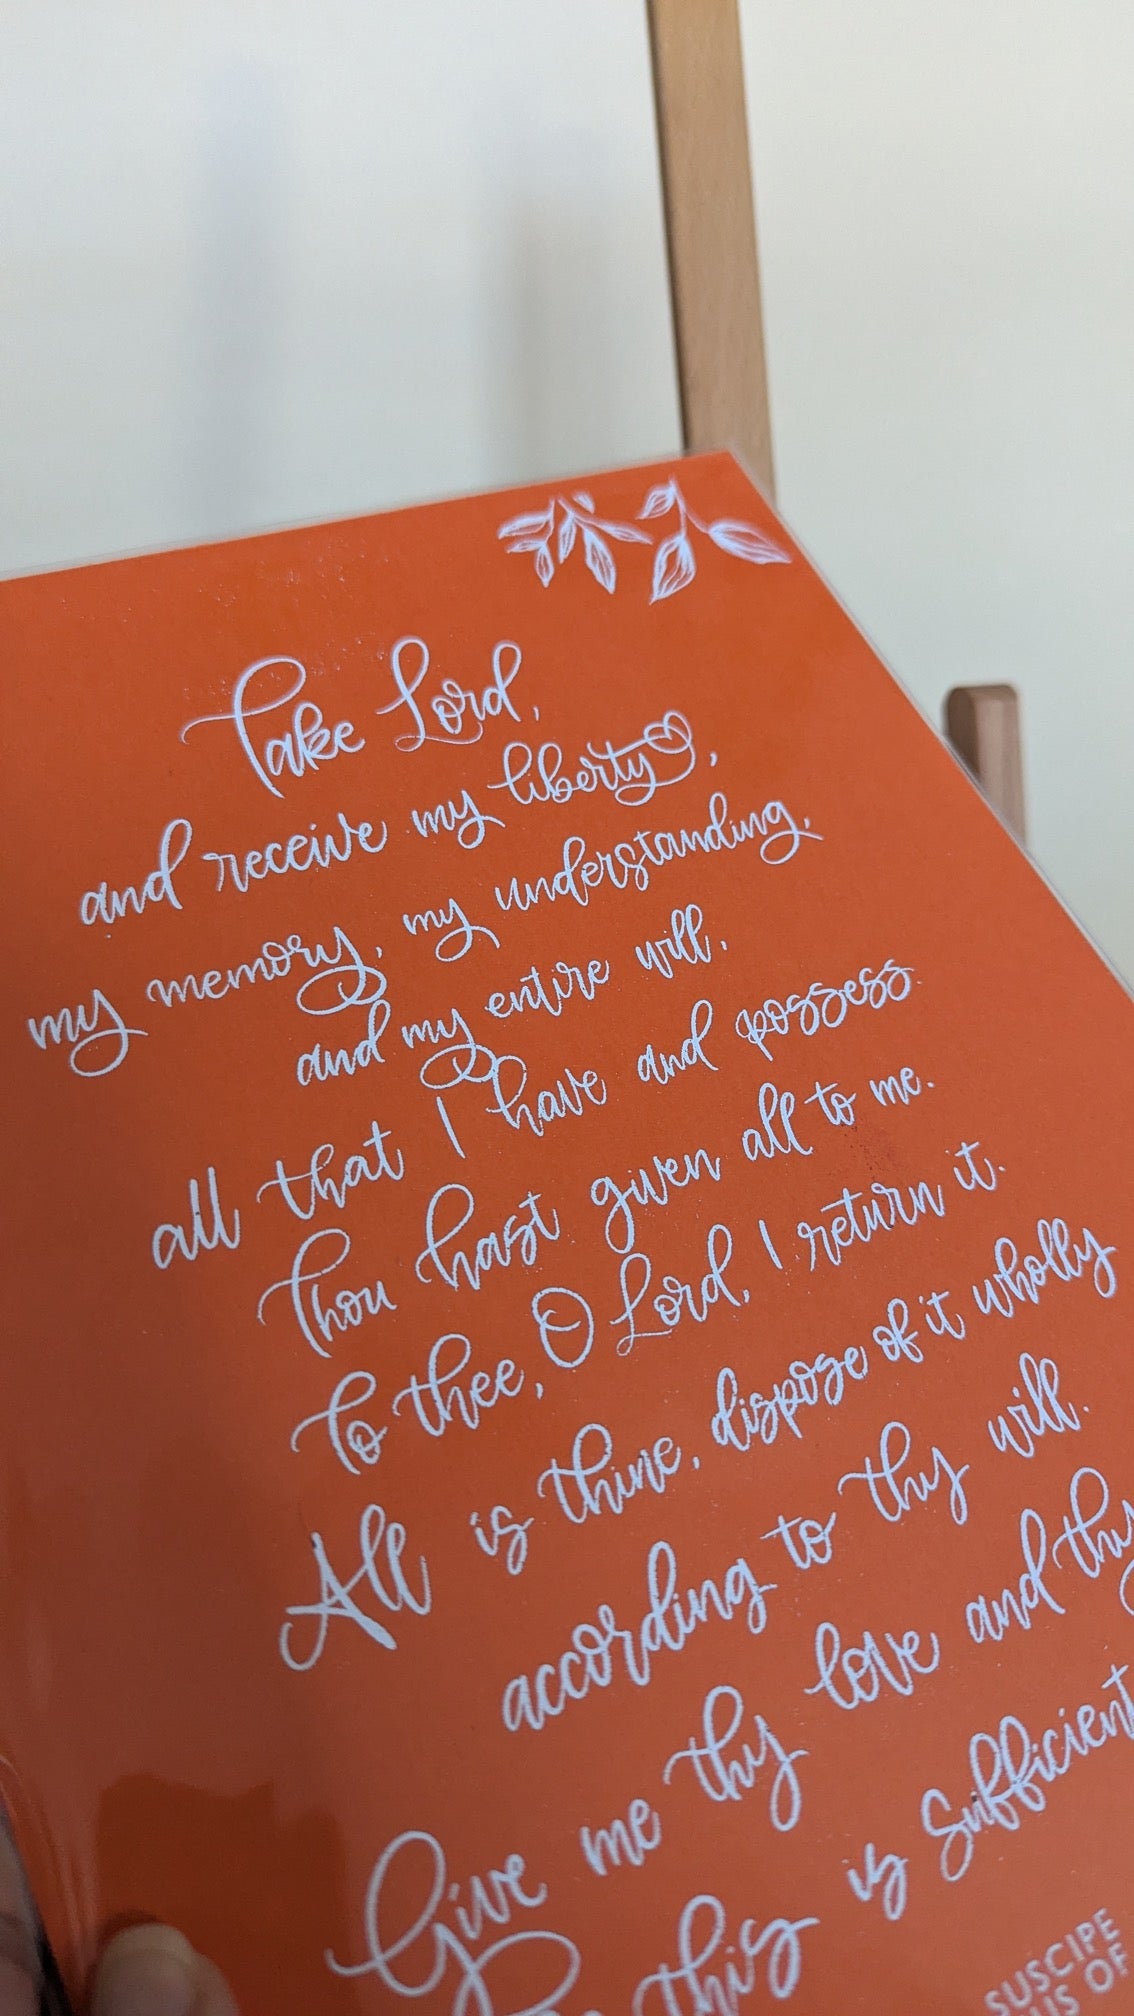 Take Lord,
and receive my liberty,
my memory, my understanding,
and my entire will,
all that I have and possess.
Thou hast given all to me.
To thee, O Lord, I return it.
All is thine, dispose of it wholly
according to thy will.
Give me thy love and thy
this is Sufficient
SUSCIPE
IS OF